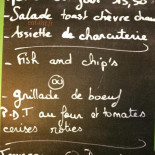 15,50
- Salade toast chèvre chau
- Assiette de charcuterie
- Fish and chip's
ou
- grillade de boeuf
P.D.T au four et tomates
cerises roties